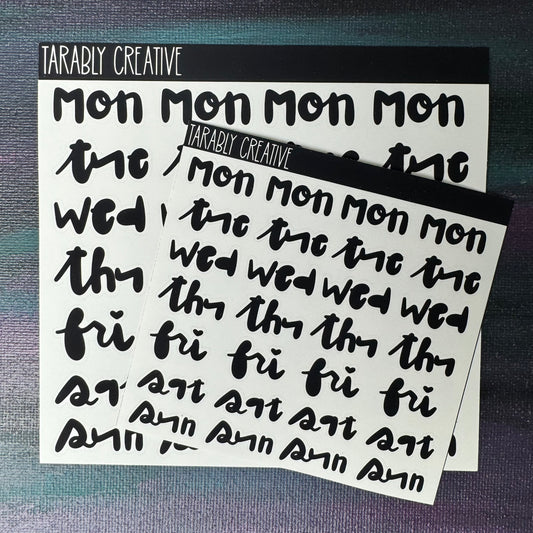 TARABLY CREATIVE
mon mon mon mon
tue tue
wed
thu
fri
sat
sun
TARABLY CREATIVE
mon mon mon mon
tue tue tue tue
wed wed wed wed
thu thu thu thu
fri fri fri fri
sat sat sat sat
sun sun sun sun